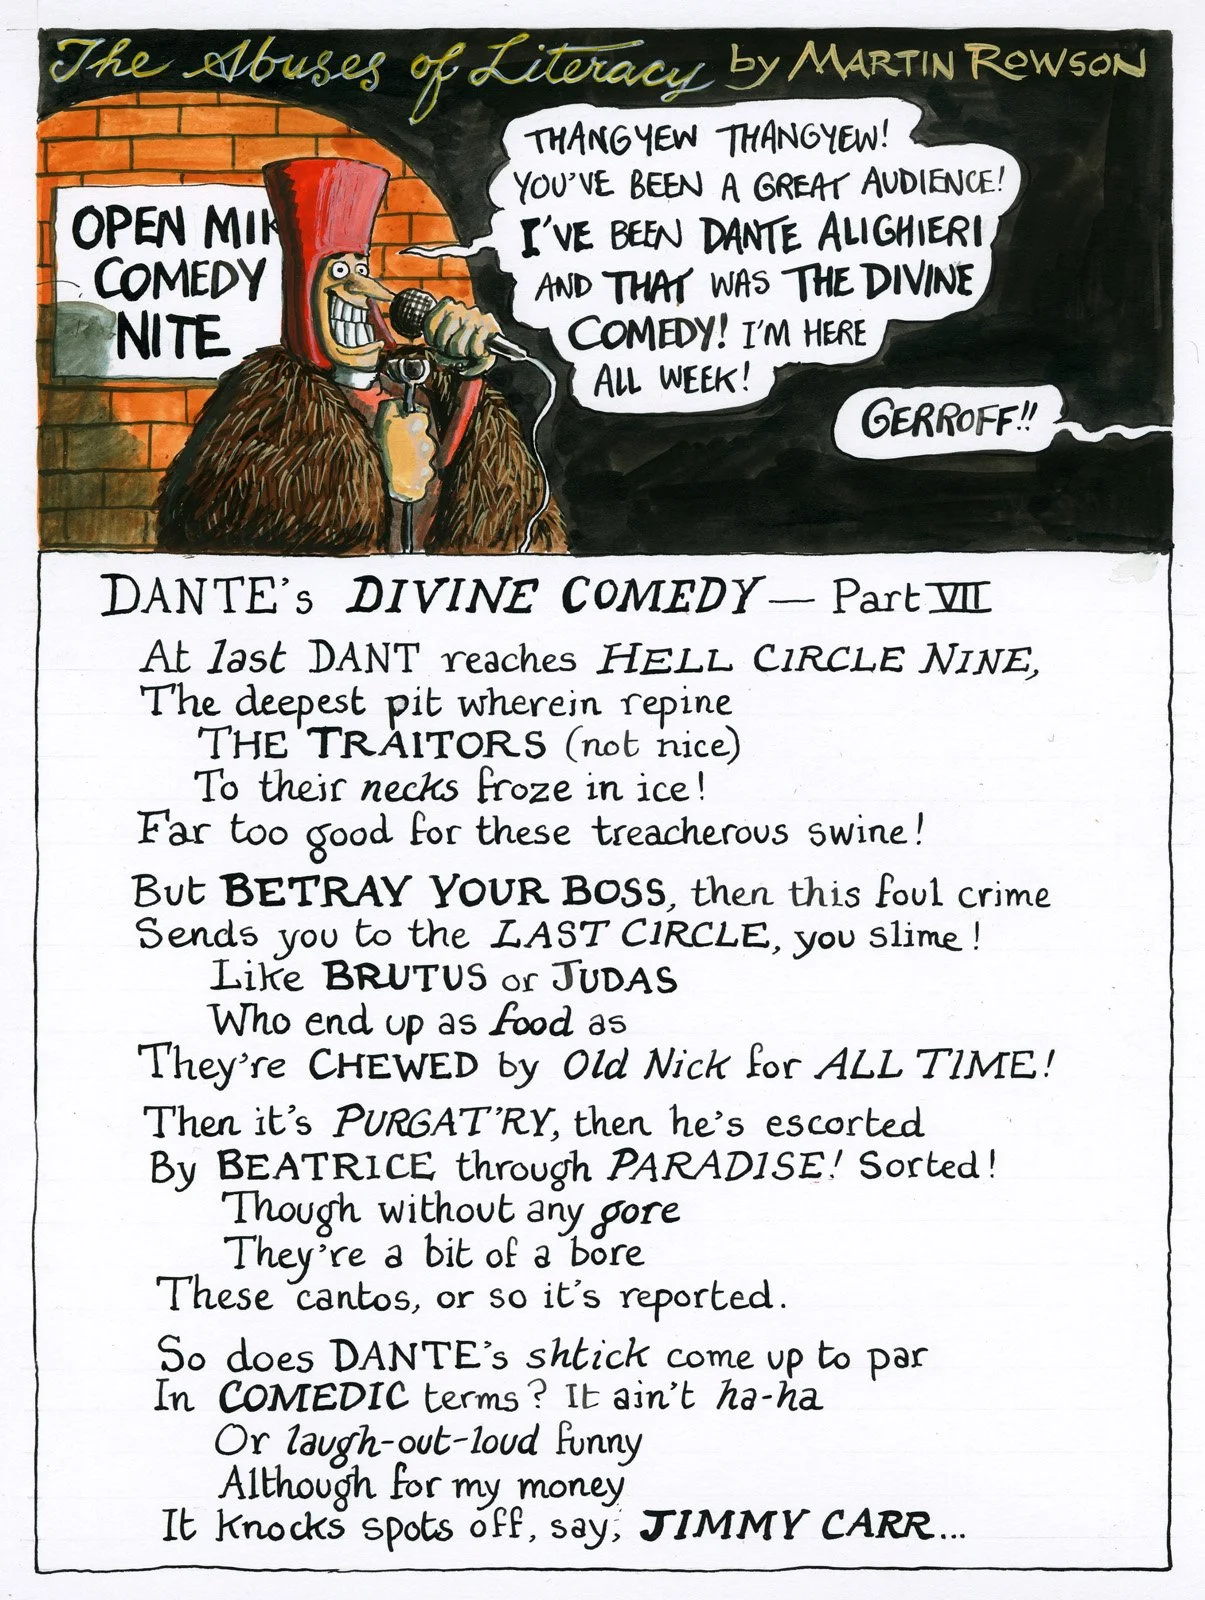 The Abuses of Literacy by MARTIN ROWSON
OPEN MIK
COMEDY
NITE
THANGYEW THANGYEW!
YOU'VE BEEN A GREAT AUDIENCE!
I'VE BEEN DANTE ALIGHIERI
AND THAT WAS THE DIVINE
COMEDY! I'M HERE
ALL WEEK!
GERROFF!!
DANTE's DIVINE COMEDY — Part VII
At last DANT reaches HELL CIRCLE NINE,
The deepest pit wherein repine
THE TRAITORS (not nice)
To their necks froze in ice!
Far too good for these treacherous swine!
But BETRAY YOUR BOSS, then this foul crime
Sends you to the LAST CIRCLE, you slime!
Like BRUTUS or JUDAS
Who end up as food as
They're CHEWED by Old Nick for ALL TIME!
Then it's PURGAT'RY, then he's escorted
By BEATRICE through PARADISE! Sorted!
Though without any gore
They're a bit of a bore
These cantos, or so it's reported.
So does DANTE's shtick come up to par
In COMEDIC terms? It ain't ha-ha
Or laugh-out-loud funny
Although for my money
It knocks spots off, say, JIMMY CARR...